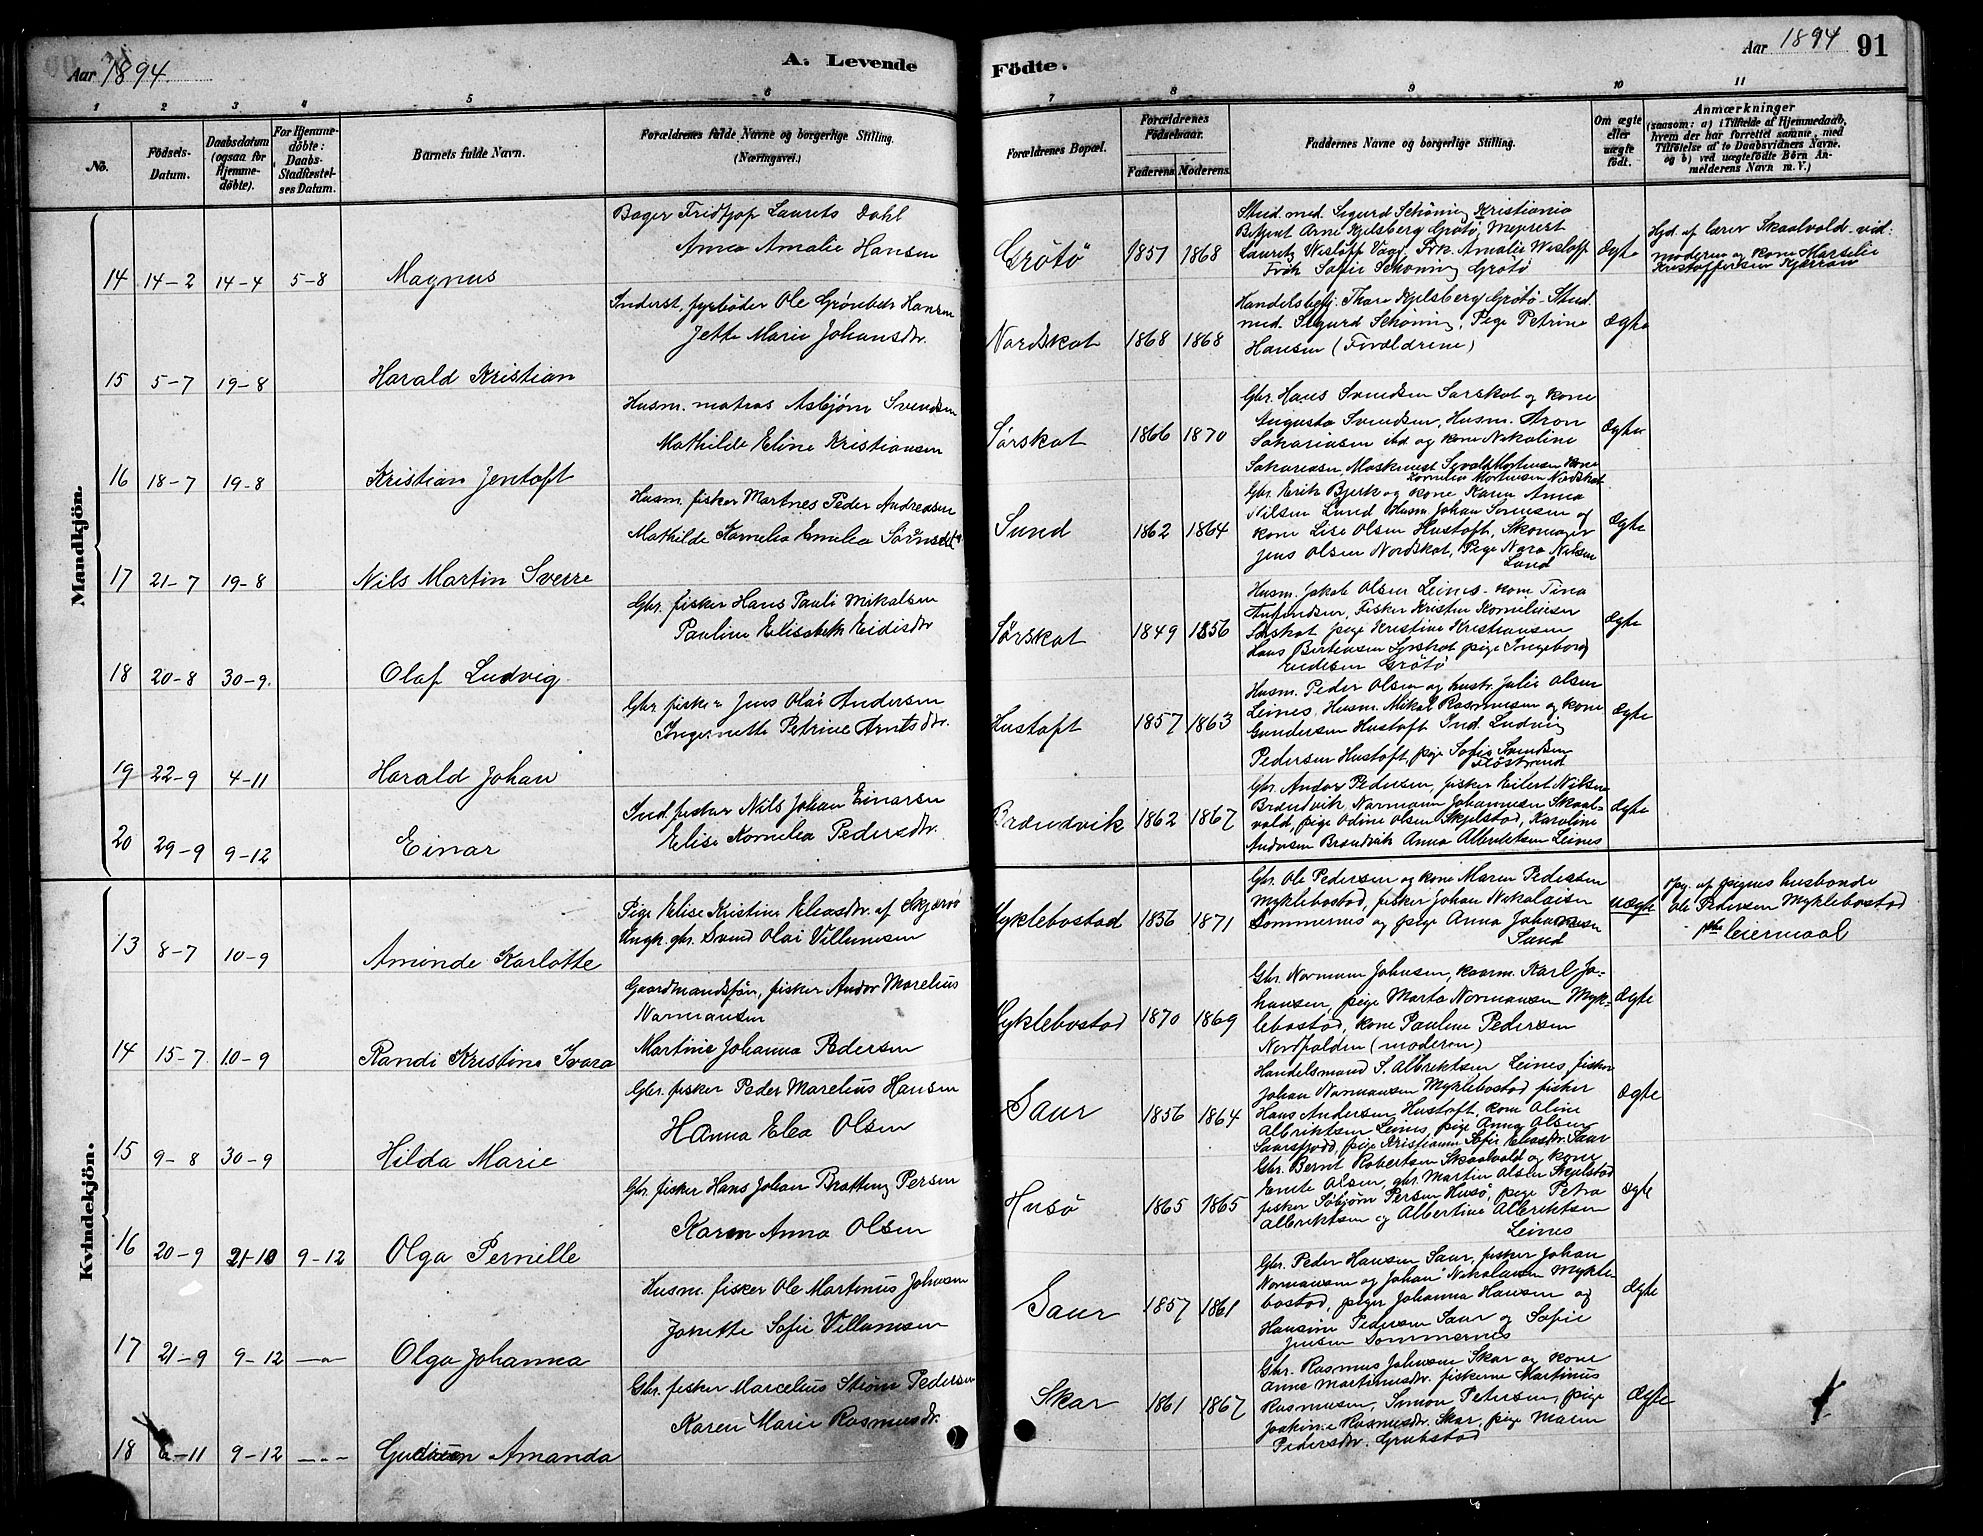 Aar 1894.
A. Levende
Födte.
Aar 1894
91
1 2 3 4 5 6 7 8 9 10 11
No.
Födsels-Datum.
Daabsdatum (ogsaa for Hjemme-döbte).
For Hjemme-döbte: Daabs-Stadfæstel-ses Datum.
Barnets fulde Navn.
Forældrenes fulde Navne og borgerlige Stilling. (Næringsvei.)
Forældrenes Bopæl.
Forældrenes Födselsaar.
Faderens. Moderens.
Faddernes Navne og borgerlige Stilling.
Om ægte eller uægte födt.
Anmærkninger
(saasom: a) i Tilfælde af Hjemmedaab, hvem der har forrettet samme, med Tilföielse af to Daabsvidners Navne, og b) ved uægtefödte Börn An-melderens Navn m. V.)
Mandkjön.
14 14-2 14-4 5-8 Magnus
Bager Fridtjof Laurets Dahl
Anna Amalie Hansen
Grötö 1857 1868
Stud. med. Sigurd Schöning Kristiania
Betjent Arne Kjelsberg Grötö,
Lauretz Wisløff Frk. Amalie Wisløff
Frök. Sofie Schöning Grötö
Ægte
Hjd. af lærer Skaalvold - vid:
moderen og kone Marselie
Kristoffersen Kjærran
15 5-7 19-8 Harald Kristian
Inderst, fyrböter Ole Grønbek Hansen
Jette Marie Johansdr.
Nordskot 1868 1868
Handelsbetj. Thore Kjelsberg Grötö - Stud.
med. Sigurd Schöning, Pige Petrine
Hansen (Forældrene)
Ægte
16 18-7 19-8 Kristian Jentoft
Husm. matros Asbjørn Svendsen
Mathilde Eline Kristiansen
Sørskot 1866 1870
Gbr. Hans Svendsen Sørskot og kone
Augusta Svendsen, Husm. Aron
Sakariasen ibd og kone Nikoline
Sakariasen Mortensen kone
Kornelia Mortensen Nordskot
Ægte
17 21-7 19-8 Nils Martin Sverre
Husm. fisker Martnes Peder Andreasen
Mathilde Kornelia Emilea
Sund 1862 1864
Gbr. Erik Bjerk og kone Karen Anna
Nilsen Sund Husm. Johan Sørensen og
kone Lise Olsen Hustoft, Skomager
Jens Olsen Nordskot, Pige Nora Nilsen
Sund
Ægte
18 20-8 30-9. Olaf Ludvig.
Gbr. fisker Hans Pauli Mikalsen
Pauline Elisabeth Eidisdr
Sørskot 1849 1856
Husm. Jakob Olsen Leines - kone Tina
Antondsen, Fisker Kristen Korneliusen
Sørskot pige Kristine Kristiansen
Hans Bertensen Sørskot pige Ingeborg
Eridsen Grötö
Ægte
19 22-9 4-11 Harald Johan
Gbr. fisker Jens Olai Andersen
Ingernette Petrine Arntsdr.
Hustoft 1857 1863
Husm. Peder Olsen og hustr. Julie Olsen
Leines, Husm. Mikal Rasmusen og kone
Gundersen Hustoft Ind. Ludvig
Pedersen Hustoft, pige Sofie Svendsen
Ægte
20 29-9 9-12 Einar
Ind. fisker Nils Johan Einarsen
Elise Kornelia Pedersdr.
Brændvik 1862 1867
Gbr. Andor Pedersen, fisker Eilert Nilsen
Brændvik, Normann Johannesen Skaal-
vold, pige Odine Olsen Skjelstad, Karoline
Andersen Brændvik Anna Albriktsen Leines
Ægte
Kvindekjön.
13 8-7 10-9 Aminde Karlotte
Pige Elise Kristine Eliasdr. af Skjærvø
Ungk. gbr. Svend Olai Villumsen
Myklebostad 1856 1871
Gbr. Ole Pedersen og kone Maren Pedersen
Myklebostad, fisker Johan Nikolaisen
Sommernes og pige Anna Johannesen
Sund
Uægte
Opg. af pigens husbonde
Ole Pedersen Myklebostad
leiermaal
14 15-7 10-9 Randi Kristine Ivara
Gaardmandsøn, fisker Andor Marelius
Normansen
Martine Johanna Pedersen
Myklebostad 1870 1869
Gbr. Normann Johnsen, kaarm. Karl Jo-
hansen, pige Marta Normansen Myk-
lebostad, kone Pauline Pedersen
Nordfolden (moderen)
Ægte
15 9-8 30-9 Hilda Marie
Gbr. fisker Peder Marelius Hansen
Hanna Elea Olsen
Saur 1856 1864
Handelsmand S. Albriktsen Leines, fisker
Johan Normansen Myklebostad fisker
Hans Andersen Hustoft, kone Aline
Albriktsen Leines, pige Anna Olsen
Saursfjord, pige Kristianna Sofie Eliasdr. Saur
Ægte
16 20-9 21-10 9-12 Olga Pernille
Gbr. fisker Hans Johan Bratteng Persen
Karen Anna Olsen
Husö 1865 1865
Gbr. Bernt Robertsen Skaalvold og kone
Emte Olsen, gbr. Martin Olsen Skjelstad
fisker Søbjørn Persen Husö, pige Petra
Albriktsen og Albertine Albriktsen
Leines
Ægte
17 21-9 9-12 —„— Olga Johanna
Husm. fisker Ole Martinus Johnsen
Jonette Sofie Villumsen
Saur 1857 1861
Gbr. Peder Hansen Saur, fisker Johan
Normansen og Johan Nikolaisen Mykle-
bostad, piger Johanna Hansen og
Hansine Pedersen Saur og Sofie
Jensen Sommernes
Ægte
18 6-11 9-12 —„— Gudrun Amanda
Gbr. fisker Marcelius Strøm Pedersen
Karen Marie Rasmusdr.
Skar 1861 1867
Gbr. Rasmus Johnsen Skar og kone
Anne Martinusdr. fiskerne Martinus
Rasmusen, Simon Petersen, pige
Joakine Rasmusdr. Skar, pige Maren
Pedersdr. Grubstad
Ægte